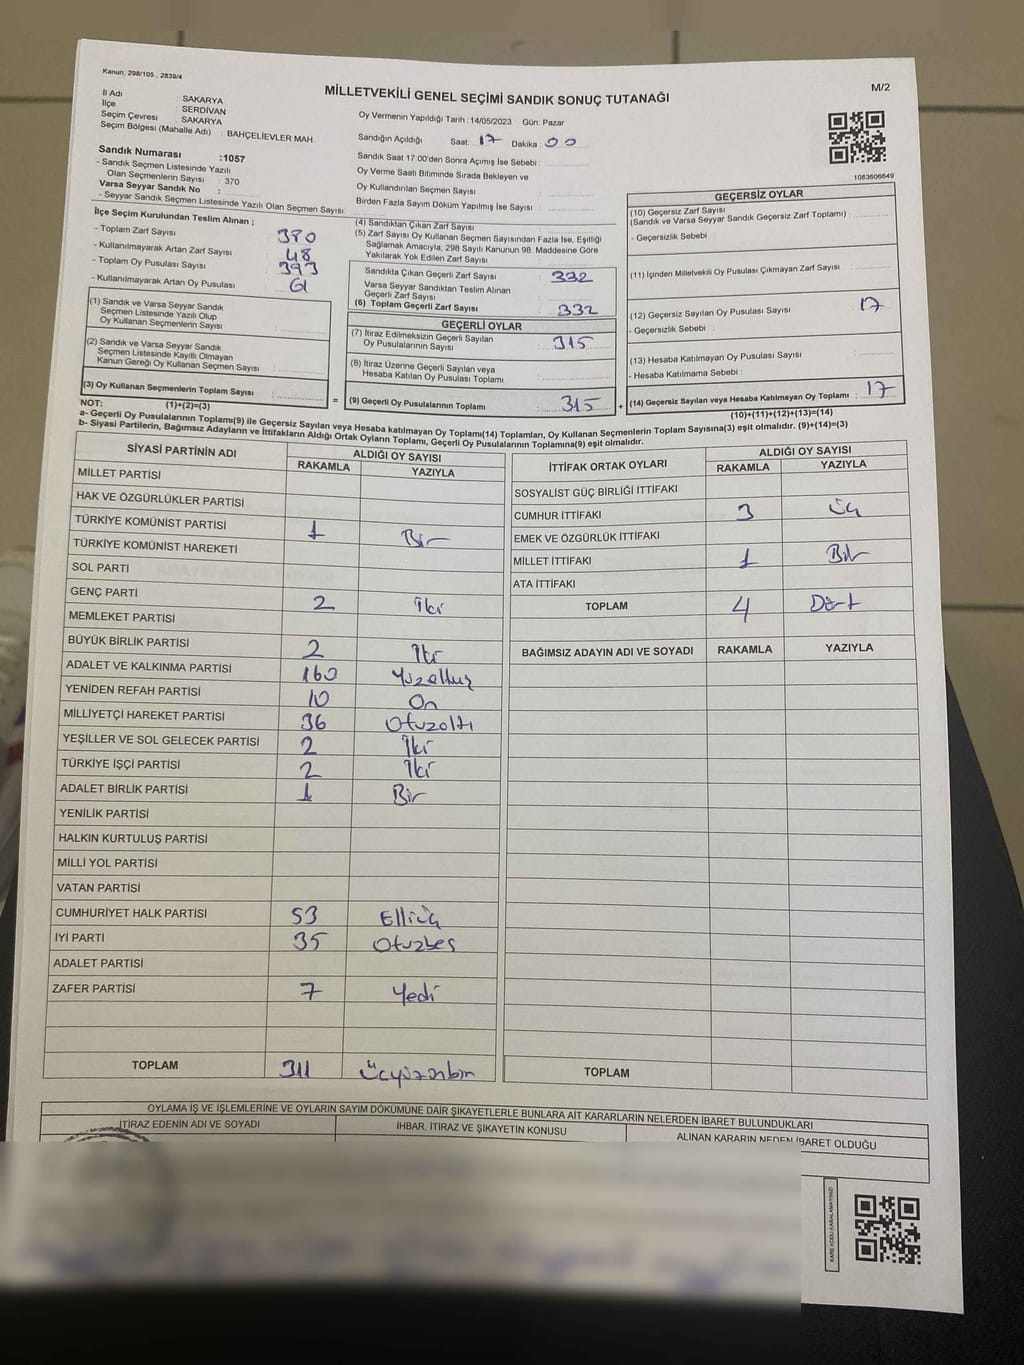 Kanun, 298/105 , 2839/4
M/2
MİLLETVEKİLİ GENEL SEÇİMİ SANDIK SONUÇ TUTANAĞI
İl Adı : SAKARYA
İlçe : SERDİVAN
Seçim Çevresi : SAKARYA
Seçim Bölgesi (Mahalle Adı) : BAHÇELİEVLER MAH.
Sandık Numarası :1057
- Sandık Seçmen Listesinde Yazılı
Olan Seçmenlerin Sayısı : 370
Varsa Seyyar Sandık No :
- Seyyar Sandık Seçmen Listesinde Yazılı Olan Seçmen Sayısı:
Oy Vermenin Yapıldığı Tarih :14/05/2023 Gün: Pazar
Sandığın Açıldığı Saat: 17 Dakika: 00
Sandık Saat 17.00'den Sonra Açımış İse Sebebi :
Oy Verme Saati Bitiminde Sırada Bekleyen ve
Oy Kullandırılan Seçmen Sayısı :
Birden Fazla Sayım Döküm Yapılmış İse Sayısı :
1083606649
İlçe Seçim Kurulundan Teslim Alınan ;
- Toplam Zarf Sayısı : 390
- Kullanılmayarak Artan Zarf Sayısı : 48
- Toplam Oy Pusulası Sayısı : 393
- Kullanılmayarak Artan Oy Pusulası : 61
(1) Sandık ve Varsa Seyyar Sandık
Seçmen Listesinde Yazılı Olup
Oy Kullanan Seçmenlerin Sayısı :
(2) Sandık ve Varsa Seyyar Sandık
Seçmen Listesinde Kayıtlı Olmayan
Kanun Gereği Oy Kullanan Seçmen Sayısı :
(3) Oy Kullanan Seçmenlerin Toplam Sayısı :
(1)+(2)=(3)
(4) Sandıktan Çıkan Zarf Sayısı :
(5) Zarf Sayısı Oy Kullanan Seçmen Sayısından Fazla İse, Eşitliği
Sağlamak Amacıyla, 298 Sayılı Kanunun 98. Maddesine Göre
Yakılarak Yok Edilen Zarf Sayısı :
Sandıkta Çıkan Geçerli Zarf Sayısı : 332
Varsa Seyyar Sandıktan Teslim Alınan
Geçerli Zarf Sayısı :
(6) Toplam Geçerli Zarf Sayısı : 332
GEÇERLİ OYLAR
(7) İtiraz Edilmeksizin Geçerli Sayılan
Oy Pusulalarının Sayısı : 315
(8) İtiraz Üzerine Geçerli Sayılan veya
Hesaba Katılan Oy Pusulası Toplamı :
= (9) Geçerli Oy Pusulalarının Toplamı : 315 +
GEÇERSİZ OYLAR
(10) Geçersiz Zarf Sayısı
(Sandık ve Varsa Seyyar Sandık Geçersiz Zarf Toplamı) :
- Geçersizlik Sebebi :
(11) İçinden Milletvekili Oy Pusulası Çıkmayan Zarf Sayısı :
(12) Geçersiz Sayılan Oy Pusulası Sayısı : 17
- Geçersizlik Sebebi :
(13) Hesaba Katılmayan Oy Pusulası Sayısı :
- Hesaba Katılmama Sebebi :
(14) Geçersiz Sayılan veya Hesaba Katılmayan Oy Toplamı : 17
(10)+(11)+(12)+(13)=(14)
NOT:
a- Geçerli Oy Pusulalarının Toplamı(9) ile Geçersiz Sayılan veya Hesaba katılmayan Oy Toplamı(14) Toplamları, Oy Kullanan Seçmenlerin Toplam Sayısına(3) eşit olmalıdır. (9)+(14)=(3)
b- Siyasi Partilerin, Bağımsız Adayların ve İttifakların Aldığı Ortak Oyların Toplamı, Geçerli Oy Pusulalarının Toplamına(9) eşit olmalıdır.
SİYASİ PARTİNİN ADI ALDIĞI OY SAYISI
RAKAMLA YAZIYLA
MİLLET PARTİSİ
HAK VE ÖZGÜRLÜKLER PARTİSİ
TÜRKİYE KOMÜNİST PARTİSİ 1 Bir
TÜRKİYE KOMÜNİST HAREKETİ
SOL PARTİ
GENÇ PARTİ 2 İki
MEMLEKET PARTİSİ
BÜYÜK BİRLİK PARTİSİ 2 İki
ADALET VE KALKINMA PARTİSİ 160 Yüzaltmış
YENİDEN REFAH PARTİSİ 10 On
MİLLİYETÇİ HAREKET PARTİSİ 36 Otuzaltı
YEŞİLLER VE SOL GELECEK PARTİSİ 2 İki
TÜRKİYE İŞÇİ PARTİSİ 2 İki
ADALET BİRLİK PARTİSİ 1 Bir
YENİLİK PARTİSİ
HALKIN KURTULUŞ PARTİSİ
MİLLİ YOL PARTİSİ
VATAN PARTİSİ
CUMHURİYET HALK PARTİSİ 53 Elliüç
İYİ PARTİ 35 Otuzbeş
ADALET PARTİSİ
ZAFER PARTİSİ 7 Yedi
TOPLAM 311 Üçyüzonbir
İTTİFAK ORTAK OYLARI ALDIĞI OY SAYISI
RAKAMLA YAZIYLA
SOSYALİST GÜÇ BİRLİĞİ İTTİFAKI
CUMHUR İTTİFAKI 3 Üç
EMEK VE ÖZGÜRLÜK İTTİFAKI
MİLLET İTTİFAKI 1 Bir
ATA İTTİFAKI
TOPLAM 4 Dört
BAĞIMSIZ ADAYIN ADI VE SOYADI RAKAMLA YAZIYLA
TOPLAM
OYLAMA İŞ VE İŞLEMLERİNE VE OYLARIN SAYIM DÖKÜMÜNE DAİR ŞİKAYETLERLE BUNLARA AİT KARARLARIN NELERDEN İBARET BULUNDUKLARI
İTİRAZ EDENİN ADI VE SOYADI İHBAR, İTİRAZ VE ŞİKAYETİN KONUSU ALINAN KARARIN NEDEN İBARET OLDUĞU
KARE KODU KARALAMAYINIZ!